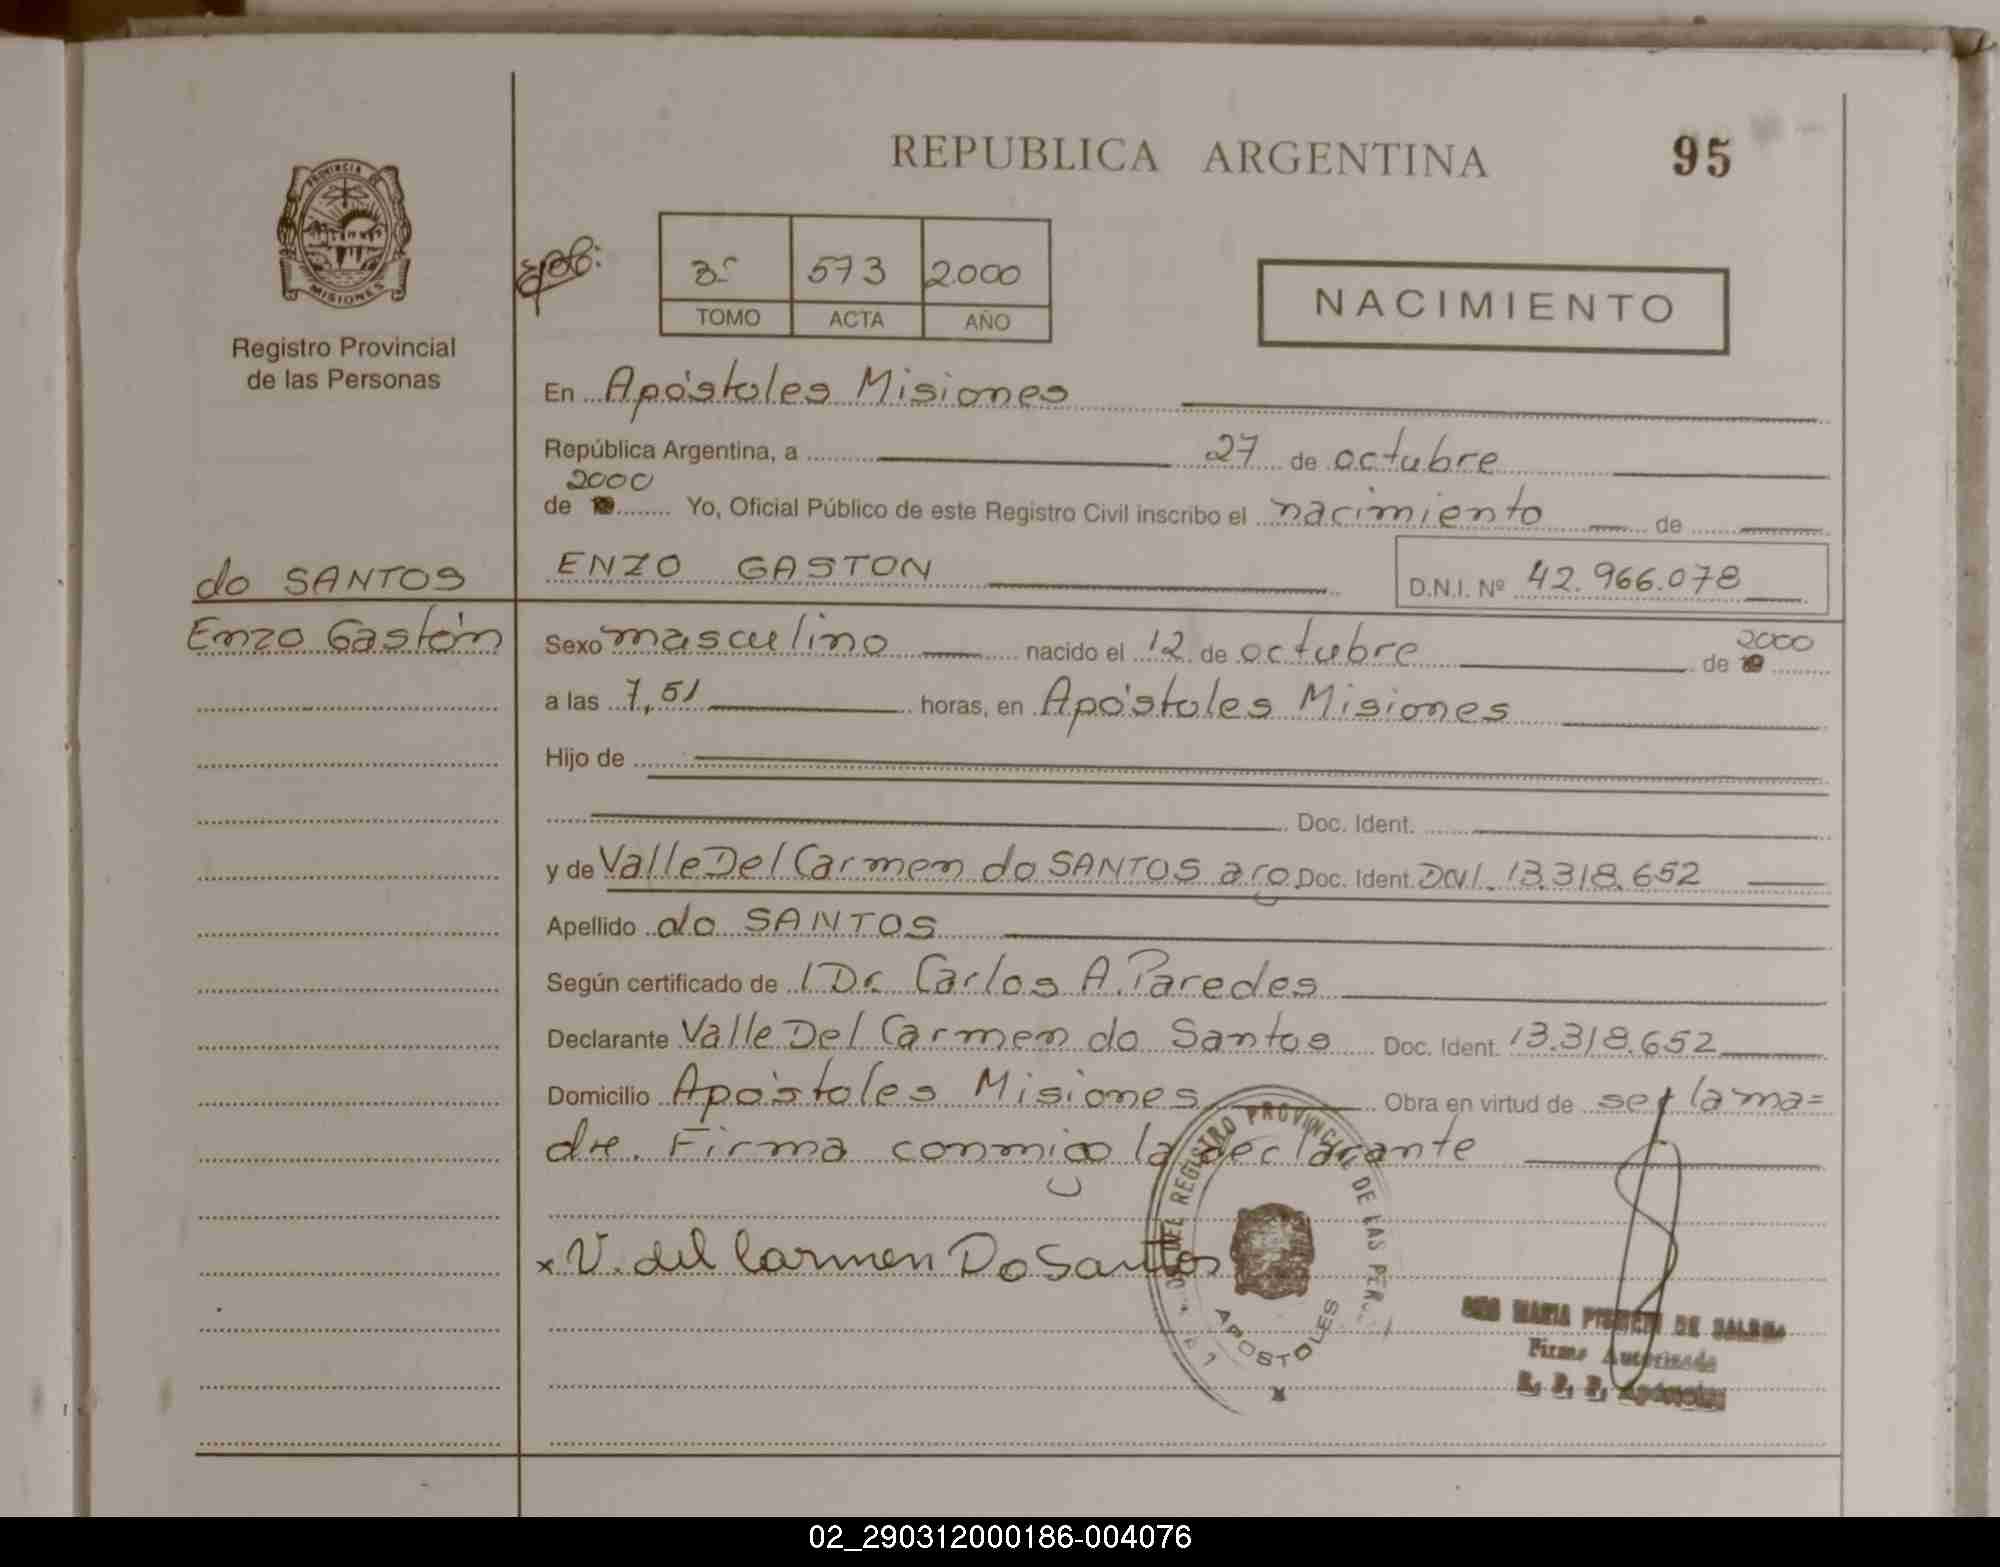 REPUBLICA ARGENTINA
95
PROVINCIA DE
MISIONES
Registro Provincial
de las Personas
3º 573 2.000
TOMO ACTA AÑO
NACIMIENTO
En Apóstoles Misiones
República Argentina, a 27 de octubre
2000
de 19 Yo, Oficial Público de este Registro Civil inscribo el nacimiento de
do SANTOS
Enzo Gastón
ENZO GASTON D.N.I. Nº 42.966.078
Sexo masculino nacido el 12 de octubre de 19 2000
a las 7,51 horas, en Apóstoles Misiones
Hijo de
Doc. Ident.
y de Valle Del Carmen do SANTOS arg Doc. Ident. DNI. 13.318.652
Apellido do SANTOS
Según certificado de l Dr. Carlos A. Paredes
Declarante Valle Del Carmen do Santos Doc. Ident. 13.318.652
Domicilio Apóstoles Misiones Obra en virtud de ser la ma=
dre. Firma conmigo la declarante
x V. del Carmen Do Santos
DEL REGISTRO PROVINCIAL DE LAS PERS
APOSTOLES
MARIA DE
Firma Autorizada
R. P. P. Apóstoles
02_290312000186-004076